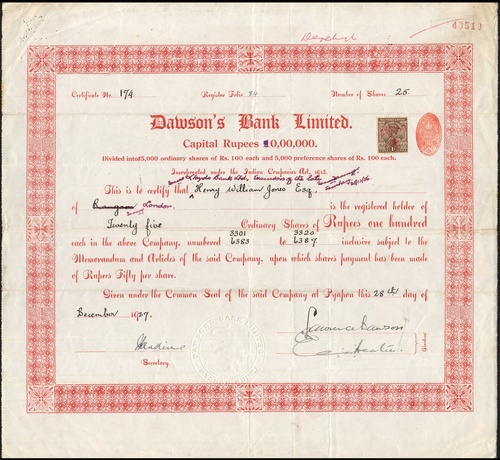 43513
Certificate No. 174
Register Folio 84
Number of Shares 25
Dawson's Bank Limited.
Capital Rupees 10,00,000.
Divided into 5,000 ordinary shares of Rs. 100 each and 5,000 preference shares of Rs. 100 each.
Incorporated under the Indian Companies Act, 1913.
Lloyds Bank Ltd, Executors of the late
This is to certify that Henry William Jones Esq.
of Rangoon London. is the registered holder of
Twenty five Ordinary Shares of Rupees one hundred
3301 3320
each in the above Company, numbered 6383 to 6387 inclusive subject to the
Memorandum and Articles of the said Company, upon which shares payment has been made
of Rupees Fifty per share.
Given under the Common Seal of the said Company at Pyapon this 28th day of
December 1927.
Lawrence Dawson
Secretary.